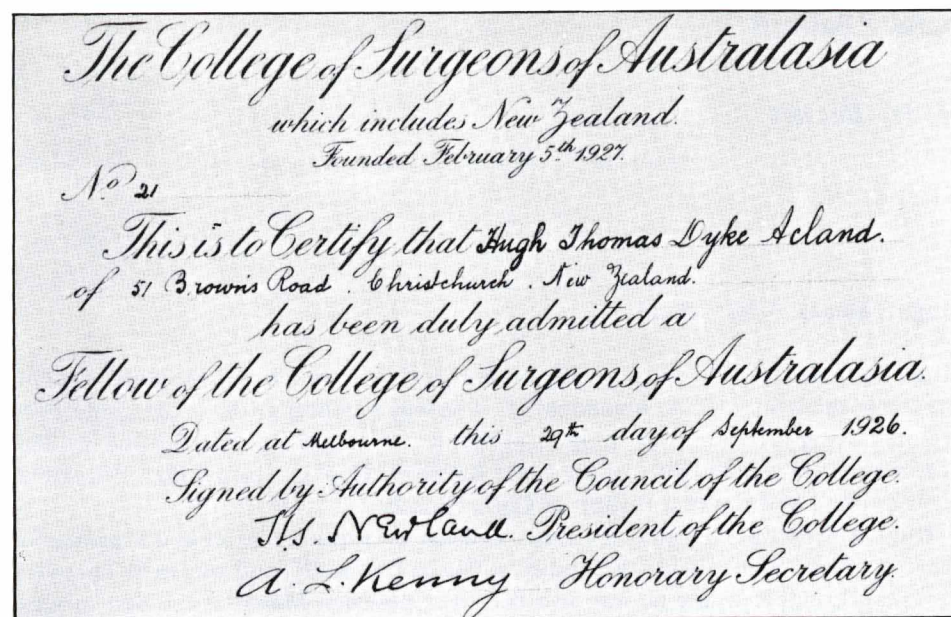 The College of Surgeons of Australasia
which includes New Zealand.
Founded February 5th 1927.
No. 21
This is to Certify that Hugh Thomas Dyke Acland.
of 51 Brown's Road. Christchurch. New Zealand.
has been duly admitted a
Fellow of the College of Surgeons of Australasia.
Dated at Melbourne. this 29th day of September 1926.
Signed by Authority of the Council of the College.
H.S. Newland. President of the College.
A. L. Kenny Honorary Secretary.